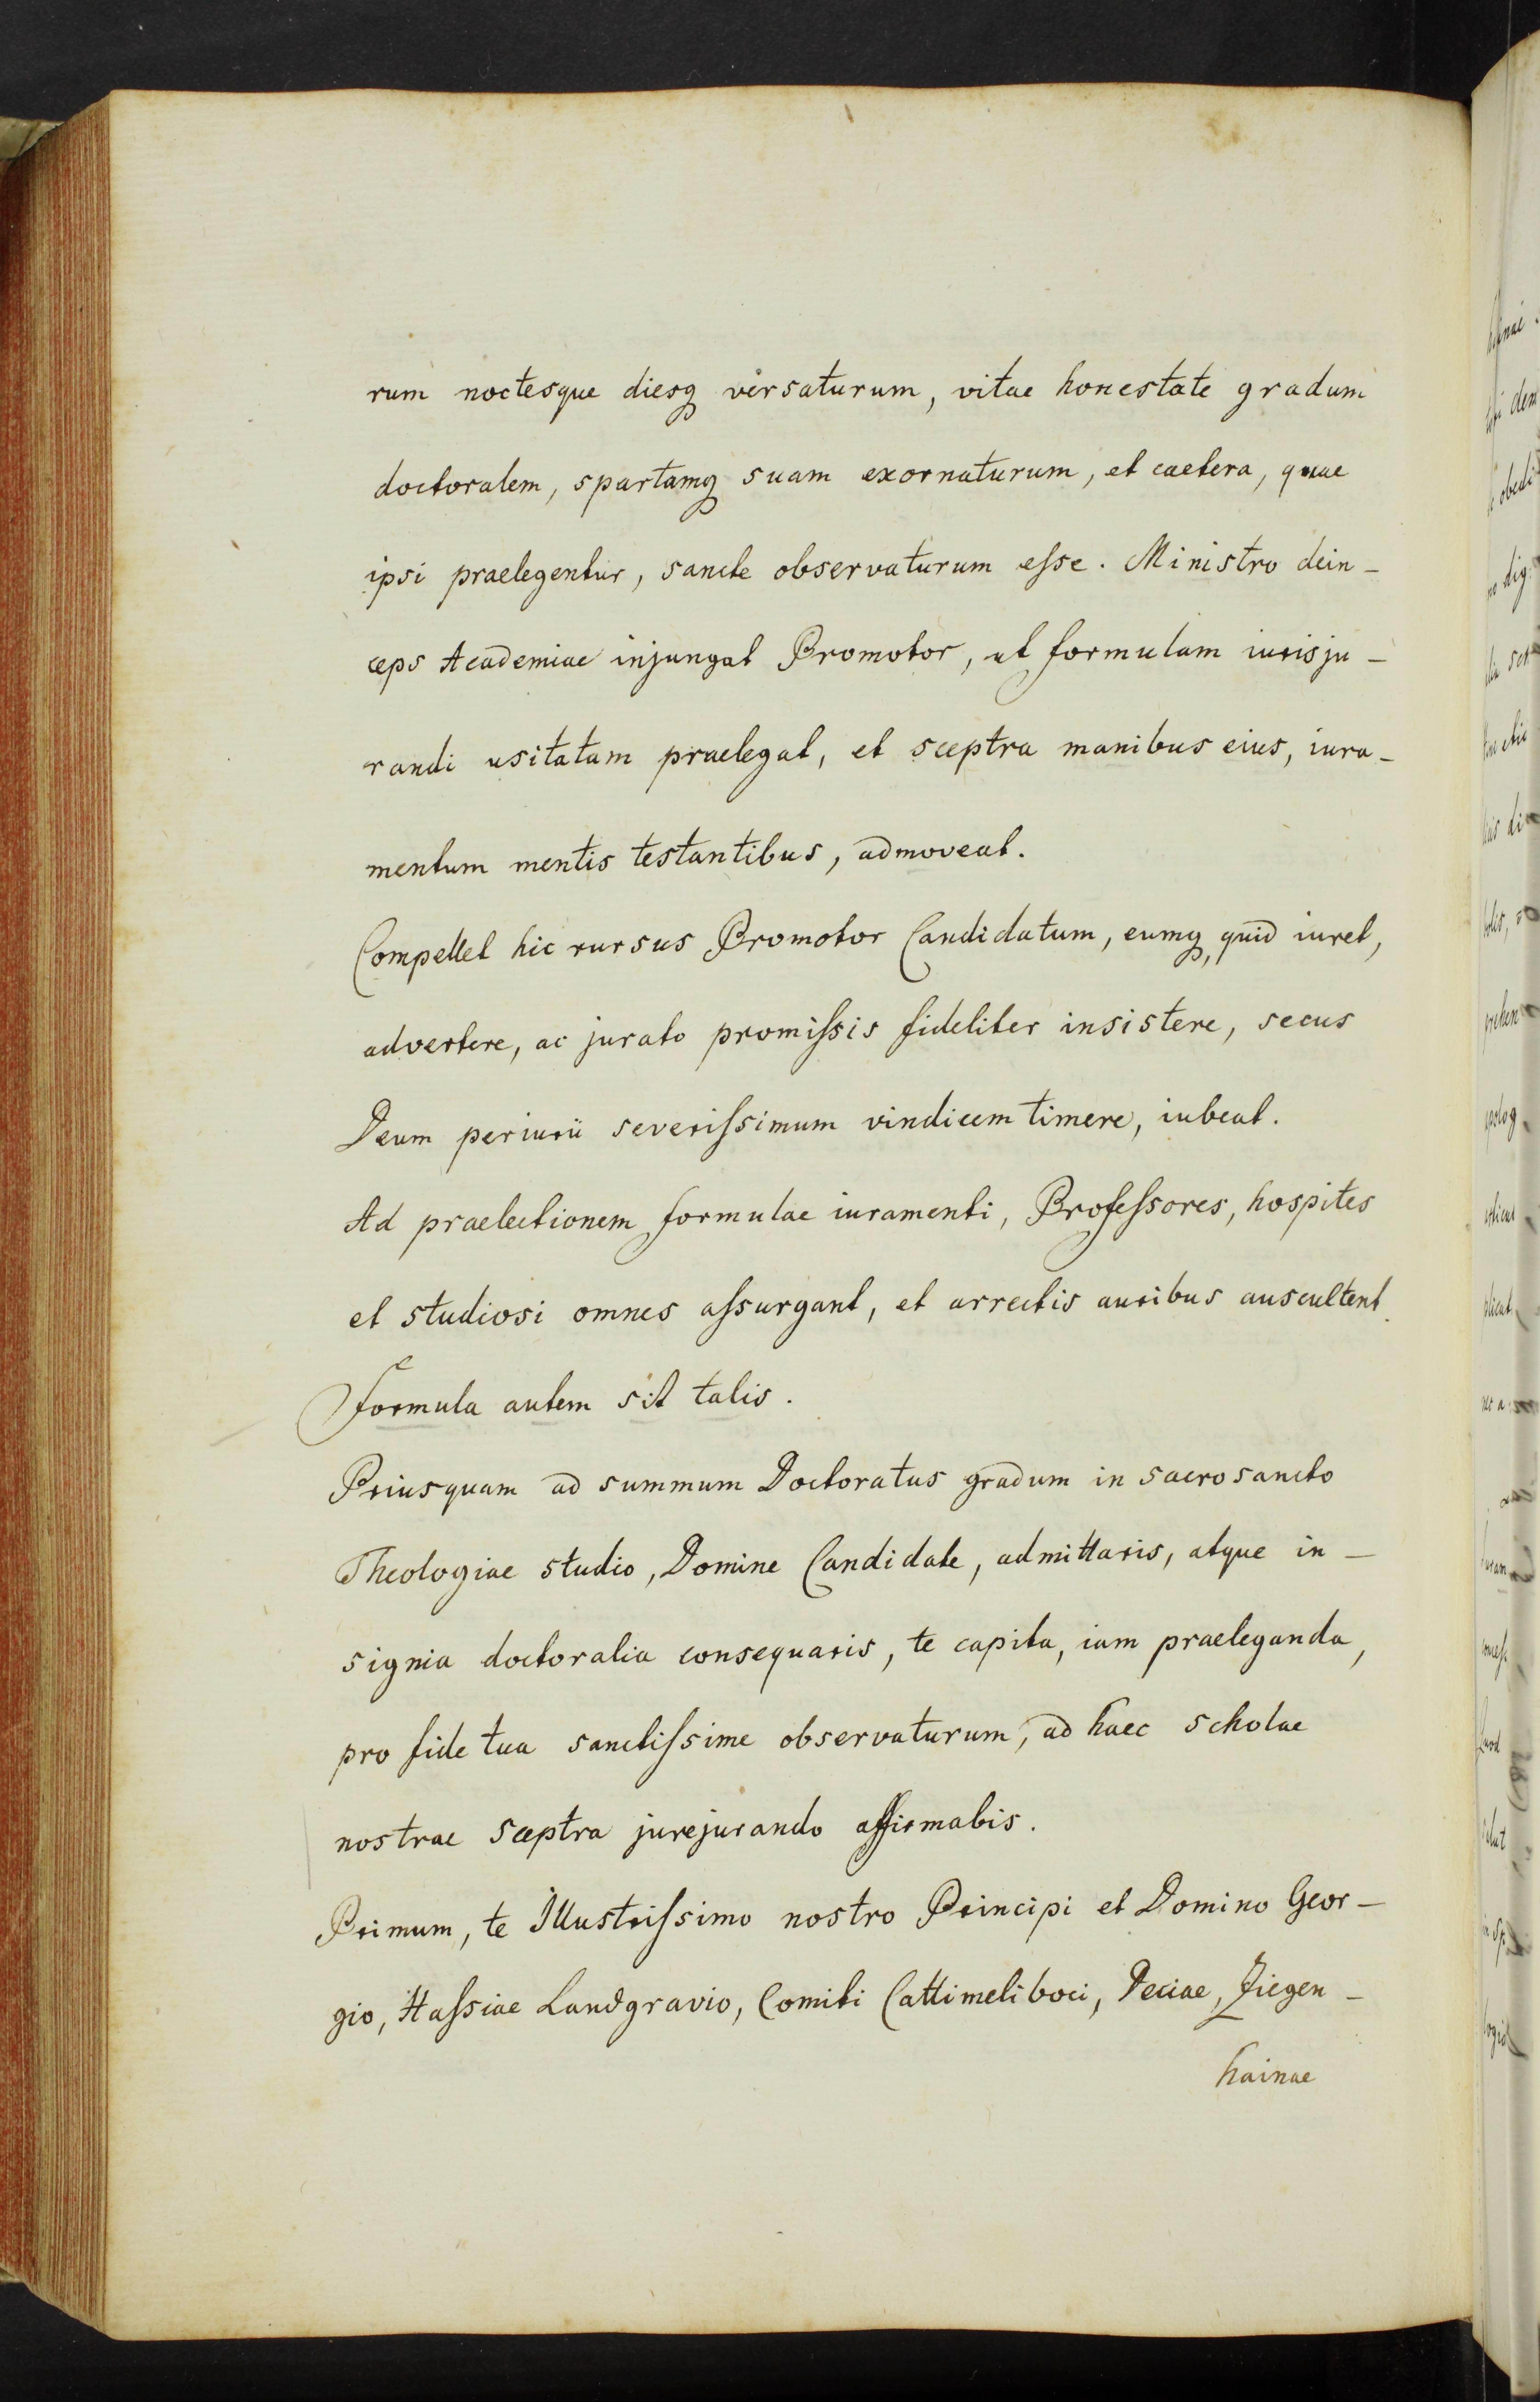 rum noctesque diesq versaturum, vitae honestate gradum
doctoralem, spartamq suam exornaturum, et caetera, quae
ipsi praelegentur, sancte observaturum eſse. Ministro dein-
ceps Academiae injungat Promotor, ut formulam iurisju-
randi usitatam praelegat, et sceptra manibus eius, iura-
mentum mentis testantibus, admoveat.
Compellet hic rursus Promotor Candidatum, eumq, quid iuret,
advertere, ac jurato promiſsis fideliter insistere, secus
Deum periurii severiſsimum vindicem timere, iubeat.
Ad praelectionem formulae iuramenti, Profeſsores, hospites
et studiosi omnes aſsurgant, et arrectis auribus auscultent.
Formula autem sit talis.
Priusquam ad summum Doctoratus gradum in sacrosancto
Theologiae studio, Domine Candidate, admittaris, atque in-
signia doctoralia consequaris, te capita, iam praeleganda,
pro fide tua sanctiſsime observaturum, ad haec scholae
nostrae sceptra jurejurando affirmabis.
Primum, te Illustriſsimo nostro Principi et Domino Geor-
gio, Haſsiae Landgravio, Comiti Cattimeliboci, Deciae, Ziegen-
hainae